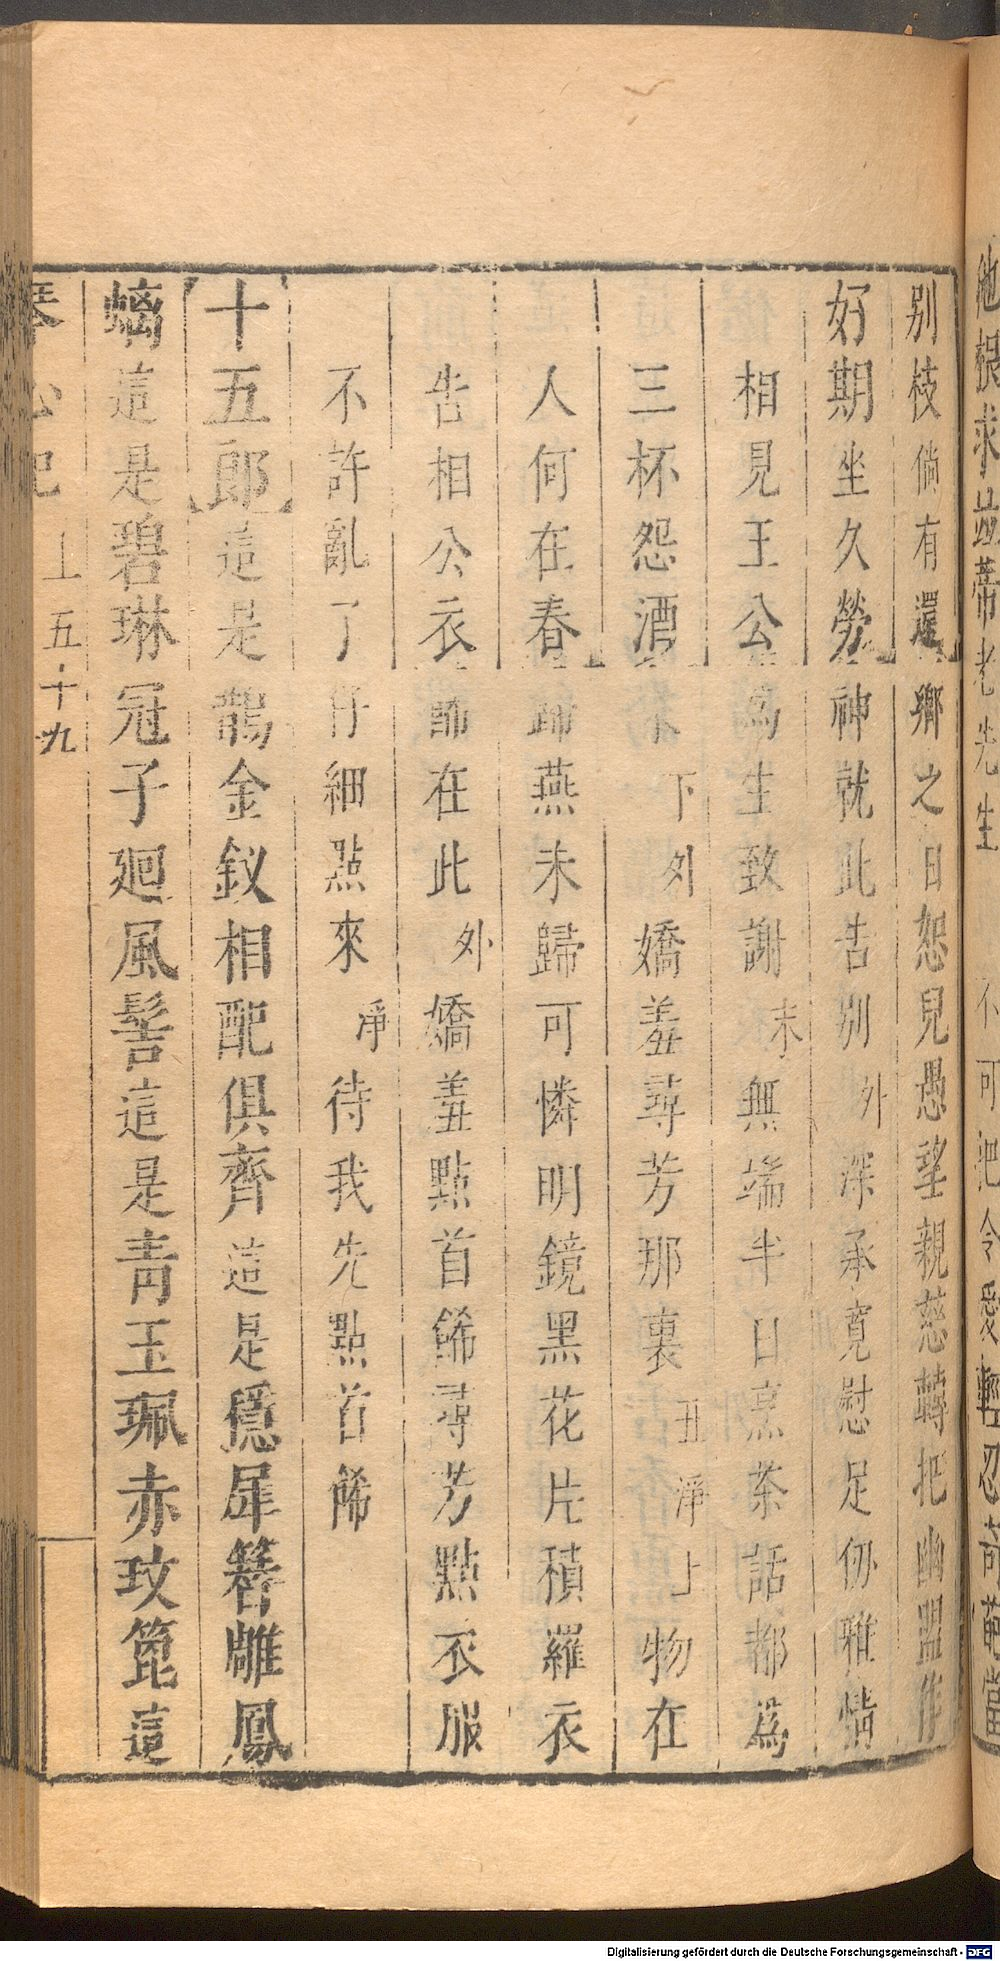 別枝倘有還鄉之日恕兒愚望親慈轉把幽盟作
好期坐久勞神就此告別外深承寛慰足仞雅情
相見王公為生致謝末無端半日烹茶話都為
三杯怨酒來下外嬌羞尋芳那裏丑淨上物在
人何在春歸燕未歸可憐明鏡黑花片積羅衣
告相公衣餙在此外嬌羞點首餙尋芳點衣服
不許亂了仔細點來淨待我先點首餙
十五郎這是鵲金釵相配俱齊這是穩犀簪雕鳳
螭這是碧琳冠子廻風髻這是青玉珮赤玫箆這
上五十九
Digitalisierung gefördert durch die Deutsche Forschungsgemeinschaft - DFG